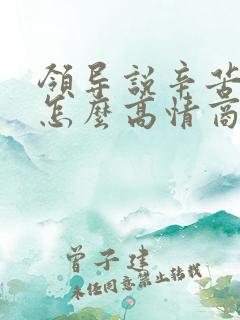 領导說辛苦
怎麼高情商
曾子建
未任同意禁止转载